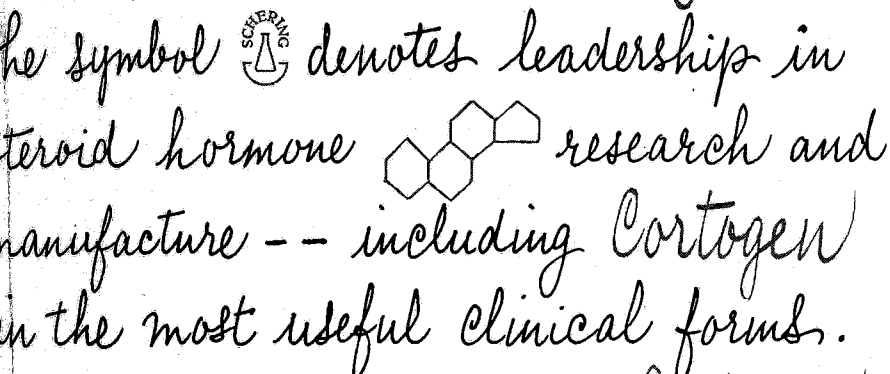 he symbol SCHERING denotes leadership in
teroid hormone research and
nanufacture -- including Cortogen
n the most useful clinical forms.